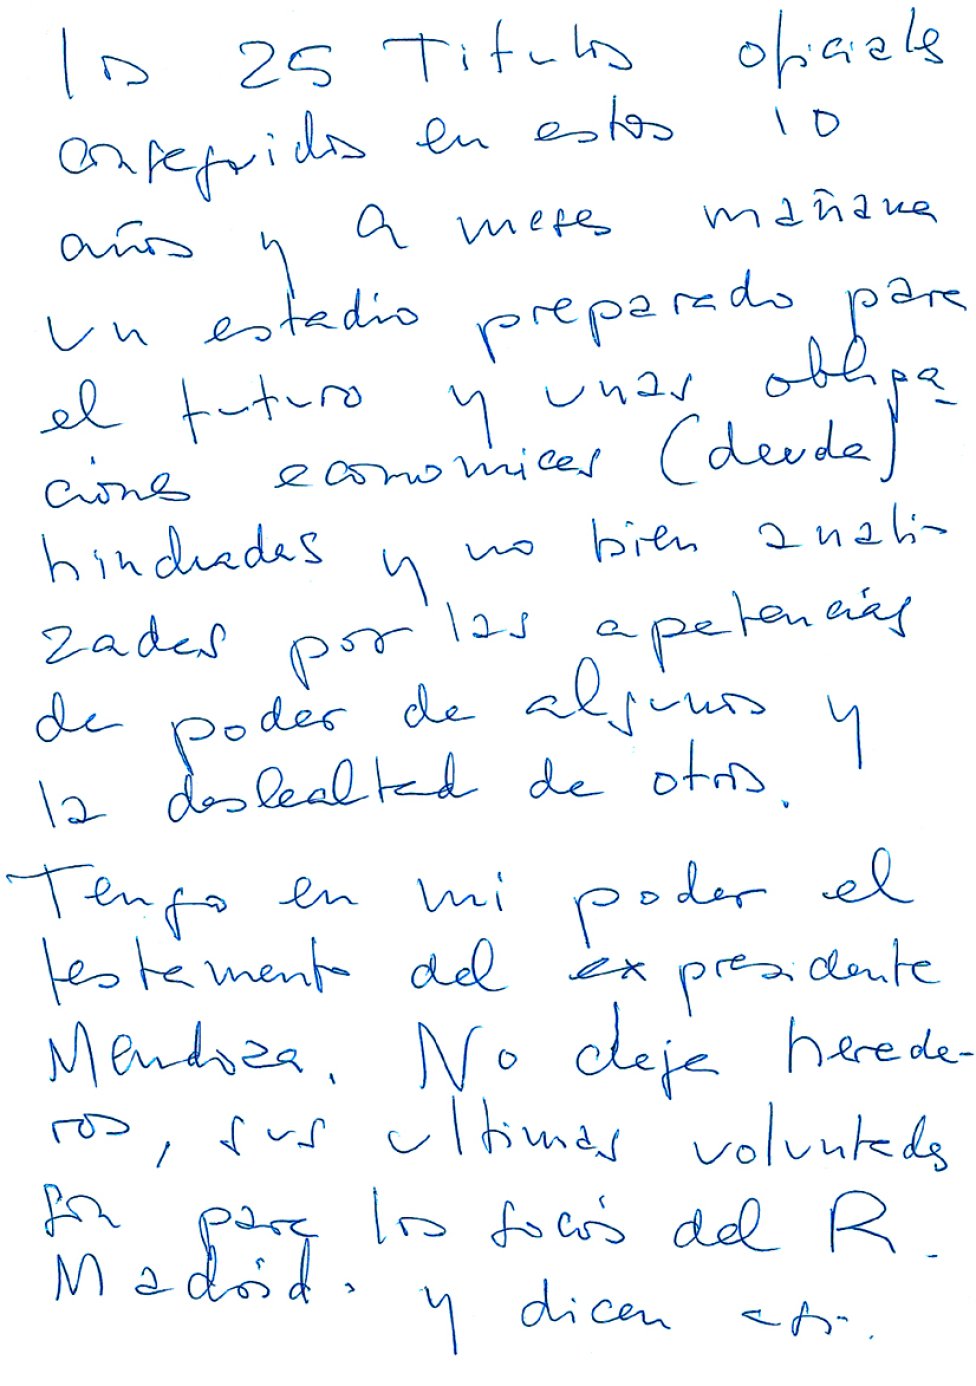 los 25 Titulos oficiales
conseguidos en estos 10
años y 9 meses mañana
un estadio preparado para
el futuro y unas obliga-
ciones economicas (deuda)
hindradas y no bien anali-
zadas por las apetencias
de poder de algunos y
la deslealtad de otros.
Tengo en mi poder el
testamento del ex presidente
Mendoza. No deja herede-
ros, sus ultimas voluntades
son para los socios del R.
Madrid. y dicen asi.